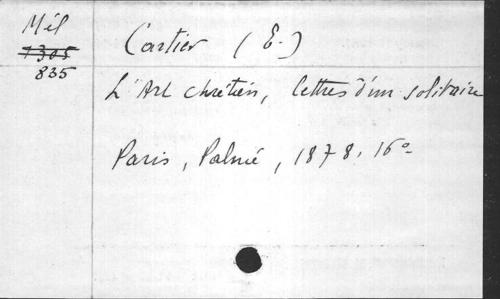 Mél
1305
835
Cartier (E.)
L'Art chrétien, lettres d'un solitaire
Paris, Palmé, 1878, 16°